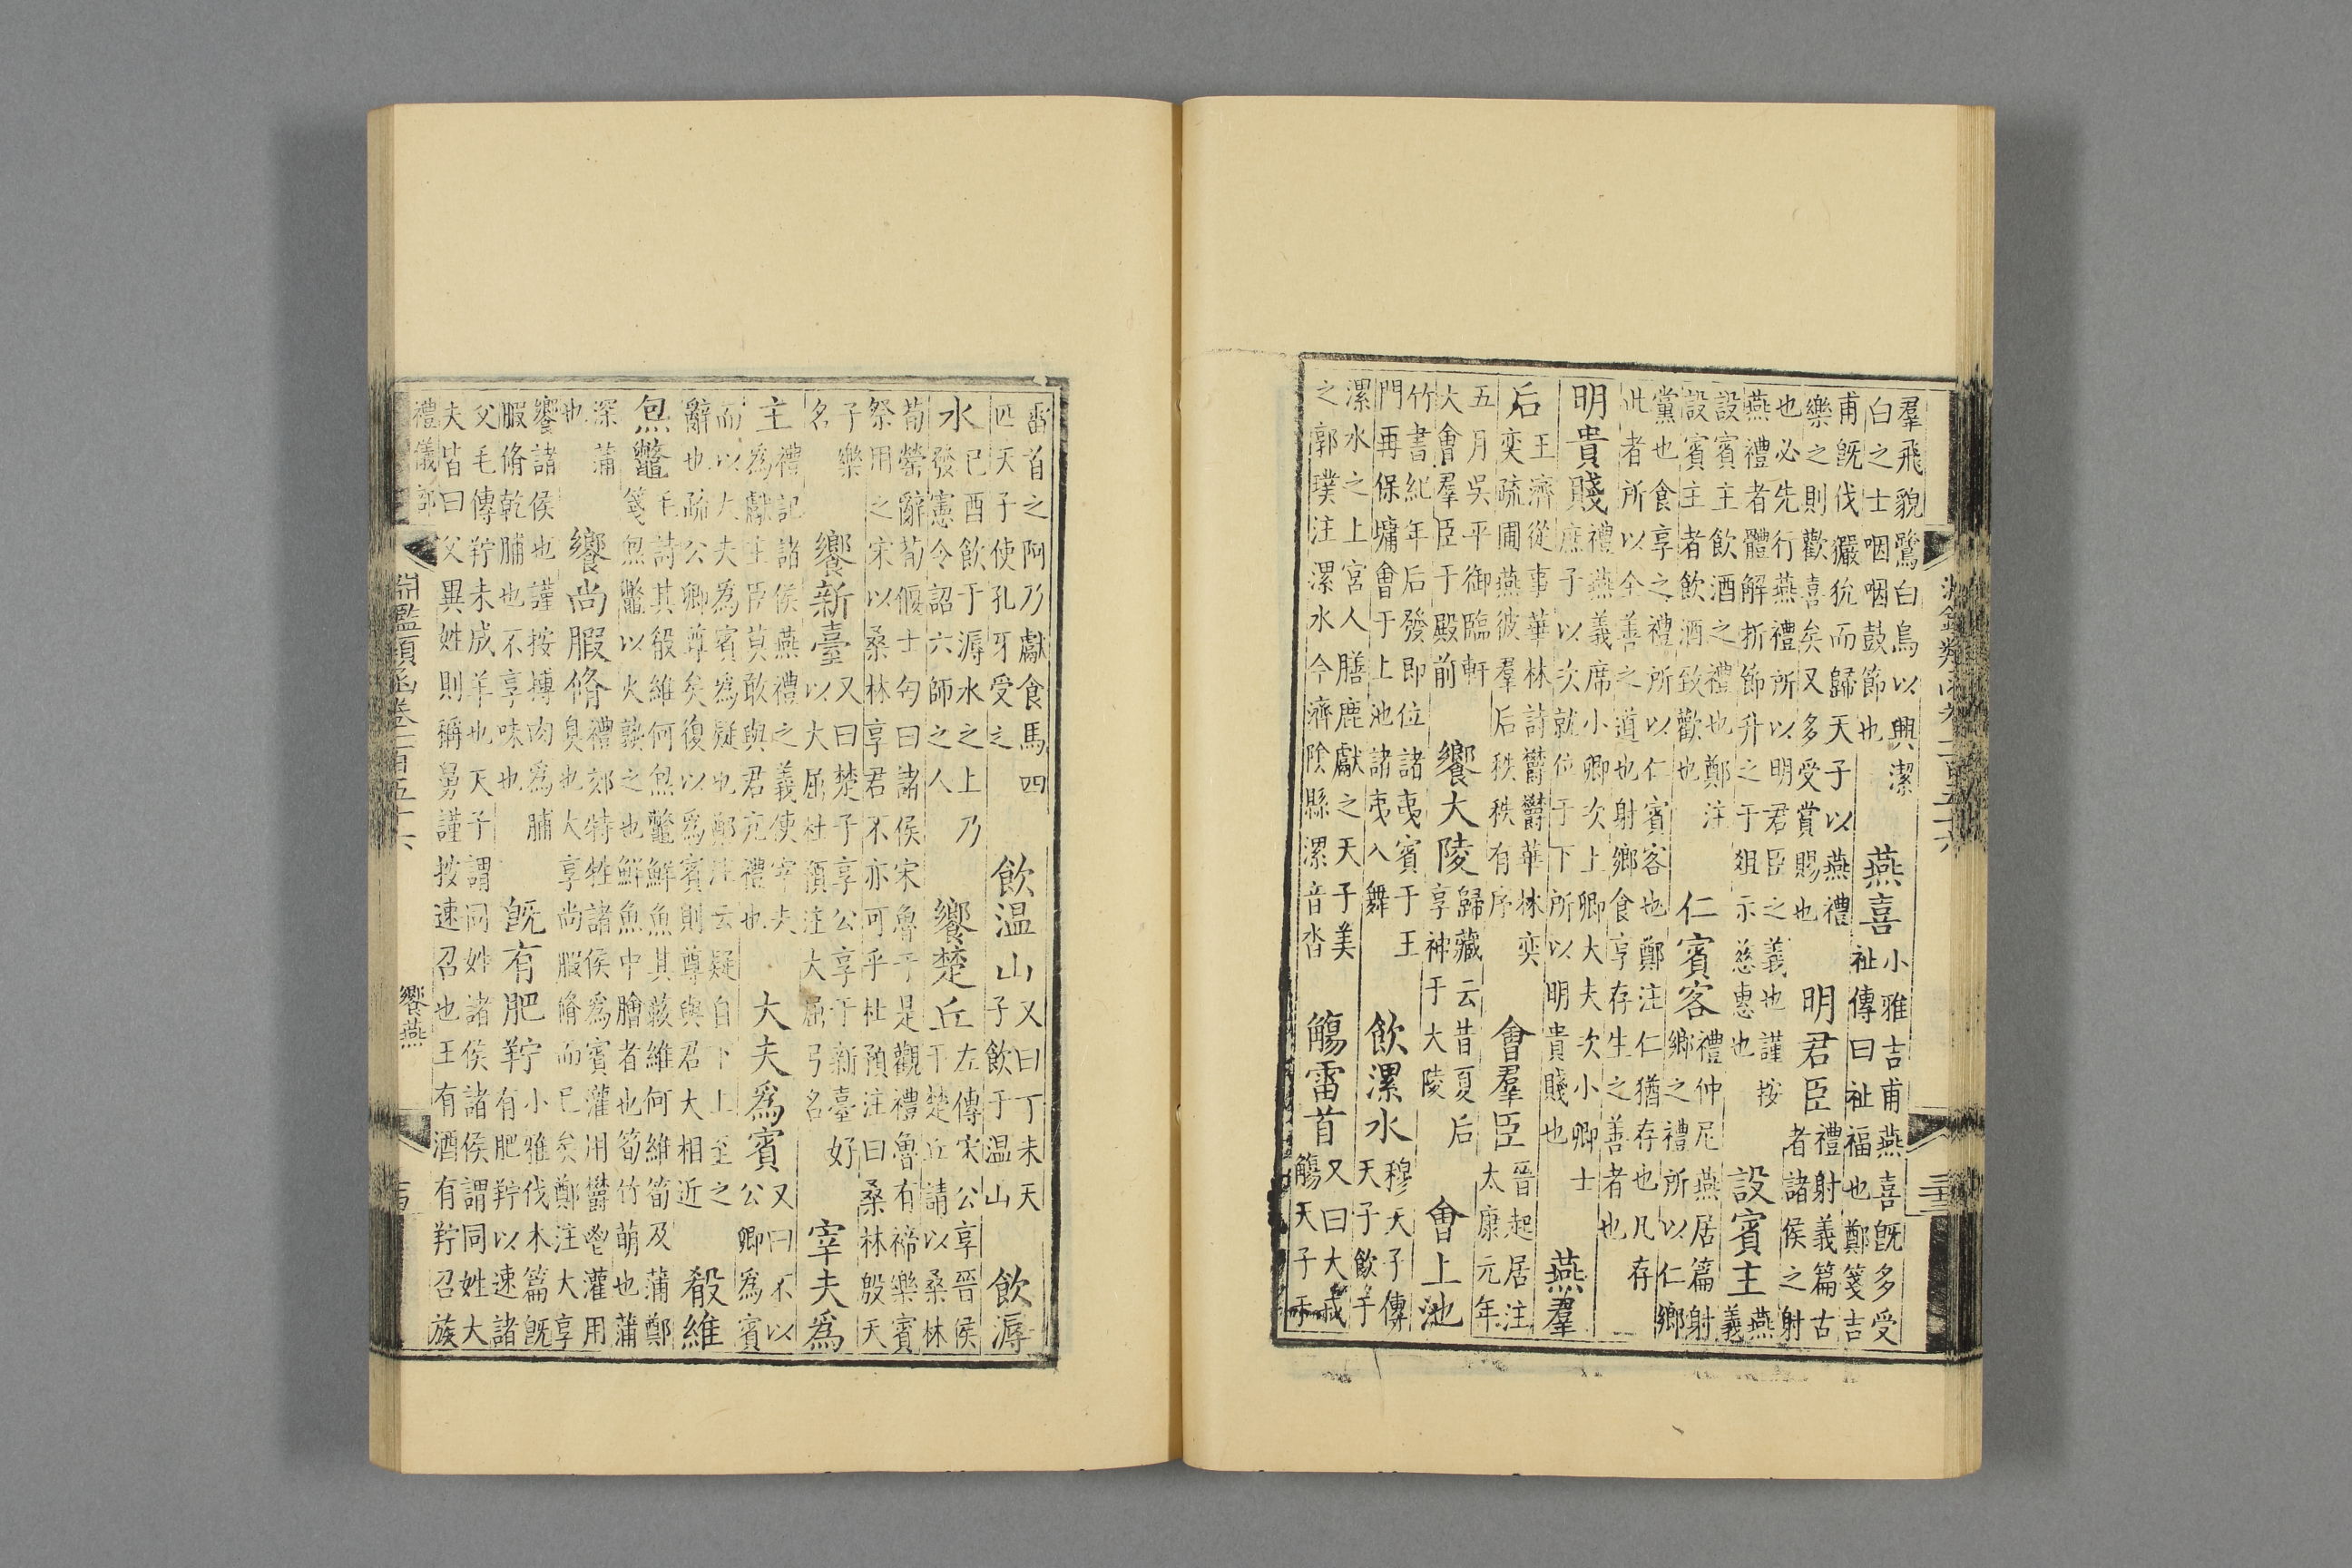 羣飛貌鷺白鳥以興潔
白之士咽咽鼓節也
燕喜
小雅吉甫燕喜既多受
祉傳曰祉福也鄭箋吉
甫既伐玁狁而歸天子以燕禮
樂之則歡喜矣又多受賞賜也
明君臣
禮射義篇古
者諸侯之射
也必先行燕禮所以明君臣之義也謹按
燕禮者體解折節升之于俎示慈惠也
設賓主
燕
義
設賓主飲酒之禮也鄭注
設賓主者飲酒致歡也
仁賓客
禮仲尼燕居篇射
鄉之禮所以仁鄉
黨也食享之禮所以仁賓客也鄭注仁猶存也凡存
此者所以全善之道也射鄉食享存生之善者也
明貴賤
禮燕義席小卿次上卿大夫次小卿士
庶子以次就位于下所以明貴賤也
燕羣
后
王濟從事華林詩鬱鬱華林奕
奕疏圃燕彼羣后秩秩有序
會羣臣
晉起居注
太康元年
五月吳平御臨軒
大會羣臣于殿前
饗大陵
歸藏云昔夏后
享神于大陵
會上池
竹書紀年后發即位諸夷賓于王
門再保墉會于上池諸夷入舞
飲漯水
穆天子傳
天子飲于
漯水之上宮人膳鹿獻之天子美
之郭璞注漯水今濟陰縣漯音沓
觴雷首
又曰大戎
觴天子于
雷首之阿乃獻食馬四
匹天子使孔牙受之
飲温山
又曰丁未天
子飲于温山
飲溽
水
已酉飲于溽水之上乃
發憲令詔六師之人
饗楚丘
左傳宋公享晉侯
于楚丘請以桑林
荀罃辭荀偃士匄曰諸侯宋魯于是觀禮魯有禘樂賓
祭用之宋以桑林享君不亦可乎杜預注曰桑林殷天
子樂
名
饗新臺
又曰楚子享公享于新臺好
以大屈杜預注大屈弓名
宰夫為
主
禮記諸侯燕禮之義使宰夫
為獻主臣莫敢與君亢禮也
大夫為賓
又曰不以
公卿為賓
而以大夫為賓為疑也鄭注云疑自下上至之
辭也疏公卿尊矣復以為賓則尊與君大相近
殽維
炰鼈
毛詩其殽維何炰鼈鮮魚其蔌維何維筍及蒲鄭
箋炰鼈以火熟之也鮮魚中膾者也筍竹萌也蒲
深蒲
也
饗尚腶脩
禮郊特牲諸侯為賓灌用鬱鬯灌用
臭也大享尚腶脩而已矣鄭注大享
饗諸侯也謹按搏肉為脯
腶脩乾脯也不享味也
既有肥羜
小雅伐木篇既
有肥羜以速諸
父毛傳羜未成羊也天子謂同姓諸侯諸侯謂同姓大
夫皆曰父異姓則稱舅謹按速召也王有酒有羜召族
淵鑑類函卷一百五十六
饗燕